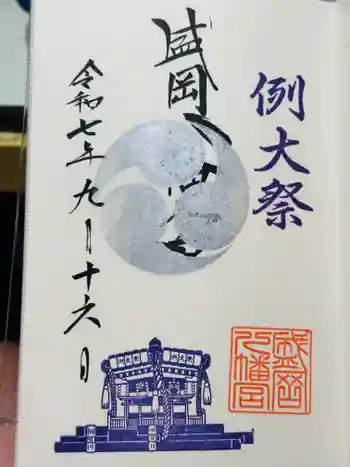 例大祭
盛岡八幡宮
令和七年九月十六日
盛岡八幡宮